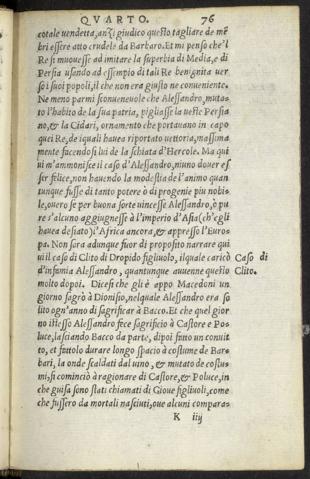 QVARTO. 76
cotale uendetta, anzi giudico questo tagliare de mẽ
bri essere atto crudele da Barbaro. Et mi penso che'l
Re si mouesse ad imitare la superbia di Media, e di
Persia usando ad essempio di tali Re benignita uer
so i suoi popoli, il che non era giusto ne conueniente.
Ne meno parmi sconueneuole che Alessandro, muta=
to l'habito de la sua patria, pigliasse la ueste Persia
na, & la Cidari, ornamento che portauano in capo
quei Re, de iquali hauea riportato uettoria, massima
mente facendosi lui de la schiata d'Hercole. Ma qui
ui m'ammonisce il caso d'Alessandro, niuno douer es
ser felice, non hauendo la modestia de l'animo quan
tunque fusse di tanto potere ò di progenie piu nobi=
le, ouero se per buona sorte uincesse Alessandro, ò pu
re s'alcuno aggiugnesse à l'imperio d'Asia (ch'egli
hauea desiato) l'Africa ancora, & appresso l'Euro=
pa. Non sara adunque fuor di proposito narrare qui
ui il caso di Clito di Dropido figliuolo, ilquale caricò Caso di
d'infamia Alessandro, quantunque auuenne questo Clito.
molto dopoi. Dicesi che gli è appo Macedoni un
giorno sagrò à Dionisio, nelquale Alessandro era so
lito ogn'anno di sagrificar à Bacco. Et che quel gior
no istesso Alessandro fece sagrificio à Castore e Po=
luce, lasciando Bacco da parte, dipoi fatto un conuit
to, et fattolo durare longo spacio à costume de Bar=
bari, la onde scaldati dal uino, & mutato de costu=
mi, si cominciò à ragionare di Castore, & Poluce, in
che guisa sono stati chiamati di Gioue figliuoli, come
che fussero da mortali nasciuti, oue alcuni compara=
K iiij